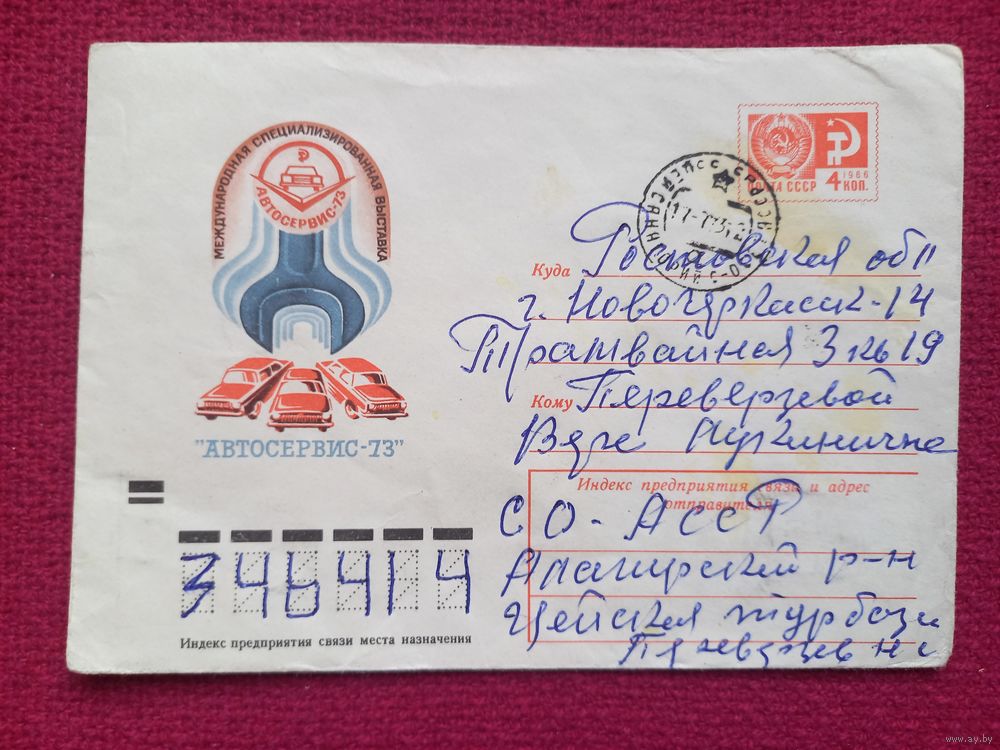 МЕЖДУНАРОДНАЯ СПЕЦИАЛИЗИРОВАННАЯ ВЫСТАВКА
АВТОСЕРВИС-73
"АВТОСЕРВИС-73"
ПОЧТА СССР
1966
4 КОП.
Куда Ростовская обл
г. Новочеркасск-14
Трамвайная 3 кв 19
Кому Переверзевой
Вере Лукиничне
Индекс предприятия связи и адрес отправителя
СО-АССР
Алагирский р-н
Цейская турбаза
346414
Индекс предприятия связи места назначения
www.ay.by